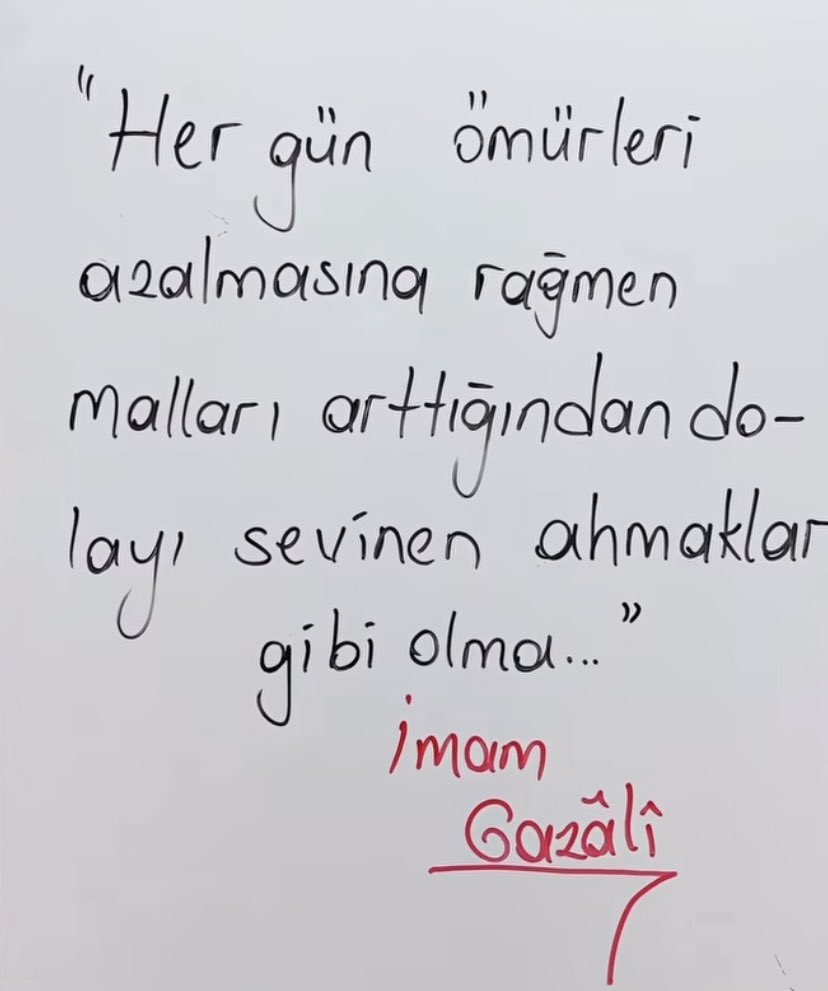 "Her gün ömürleri
azalmasına rağmen
malları arttığından do-
layı sevinen ahmaklar
gibi olma..."
İmam
Gazâlî